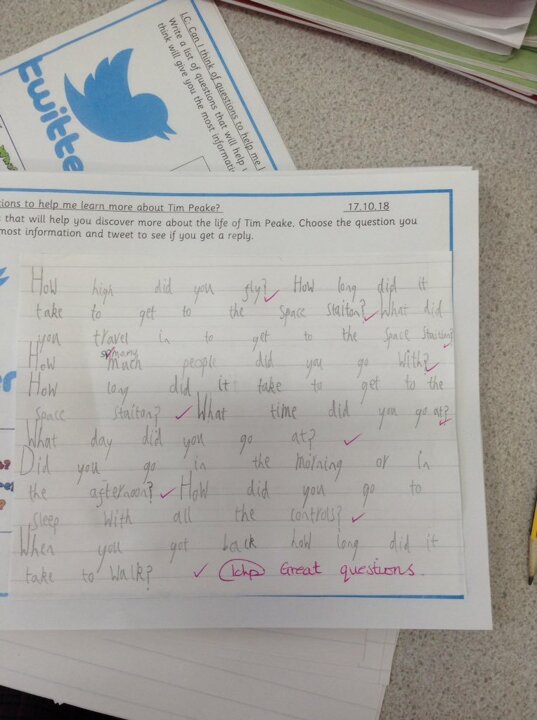 LC: Can I think of questions to help me l
Write a list of questions that will help
think will give you the most informati
twitte
tions to help me learn more about Tim Peake? 17.10.18
s that will help you discover more about the life of Tim Peake. Choose the question you
most information and tweet to see if you get a reply.
How high did you fly? How long did it
take to get to the space staiton? What did
you travel in to get to the space staiton?
many
How much people did you go with?
How long did it take to get to the
space staiton? What time did you go at?
What day did you go at?
Did you go in the morning or in
the afternoon? How did you go to
sleep with all the controls?
When you got back how long did it
take to walk? 1chp Great questions.